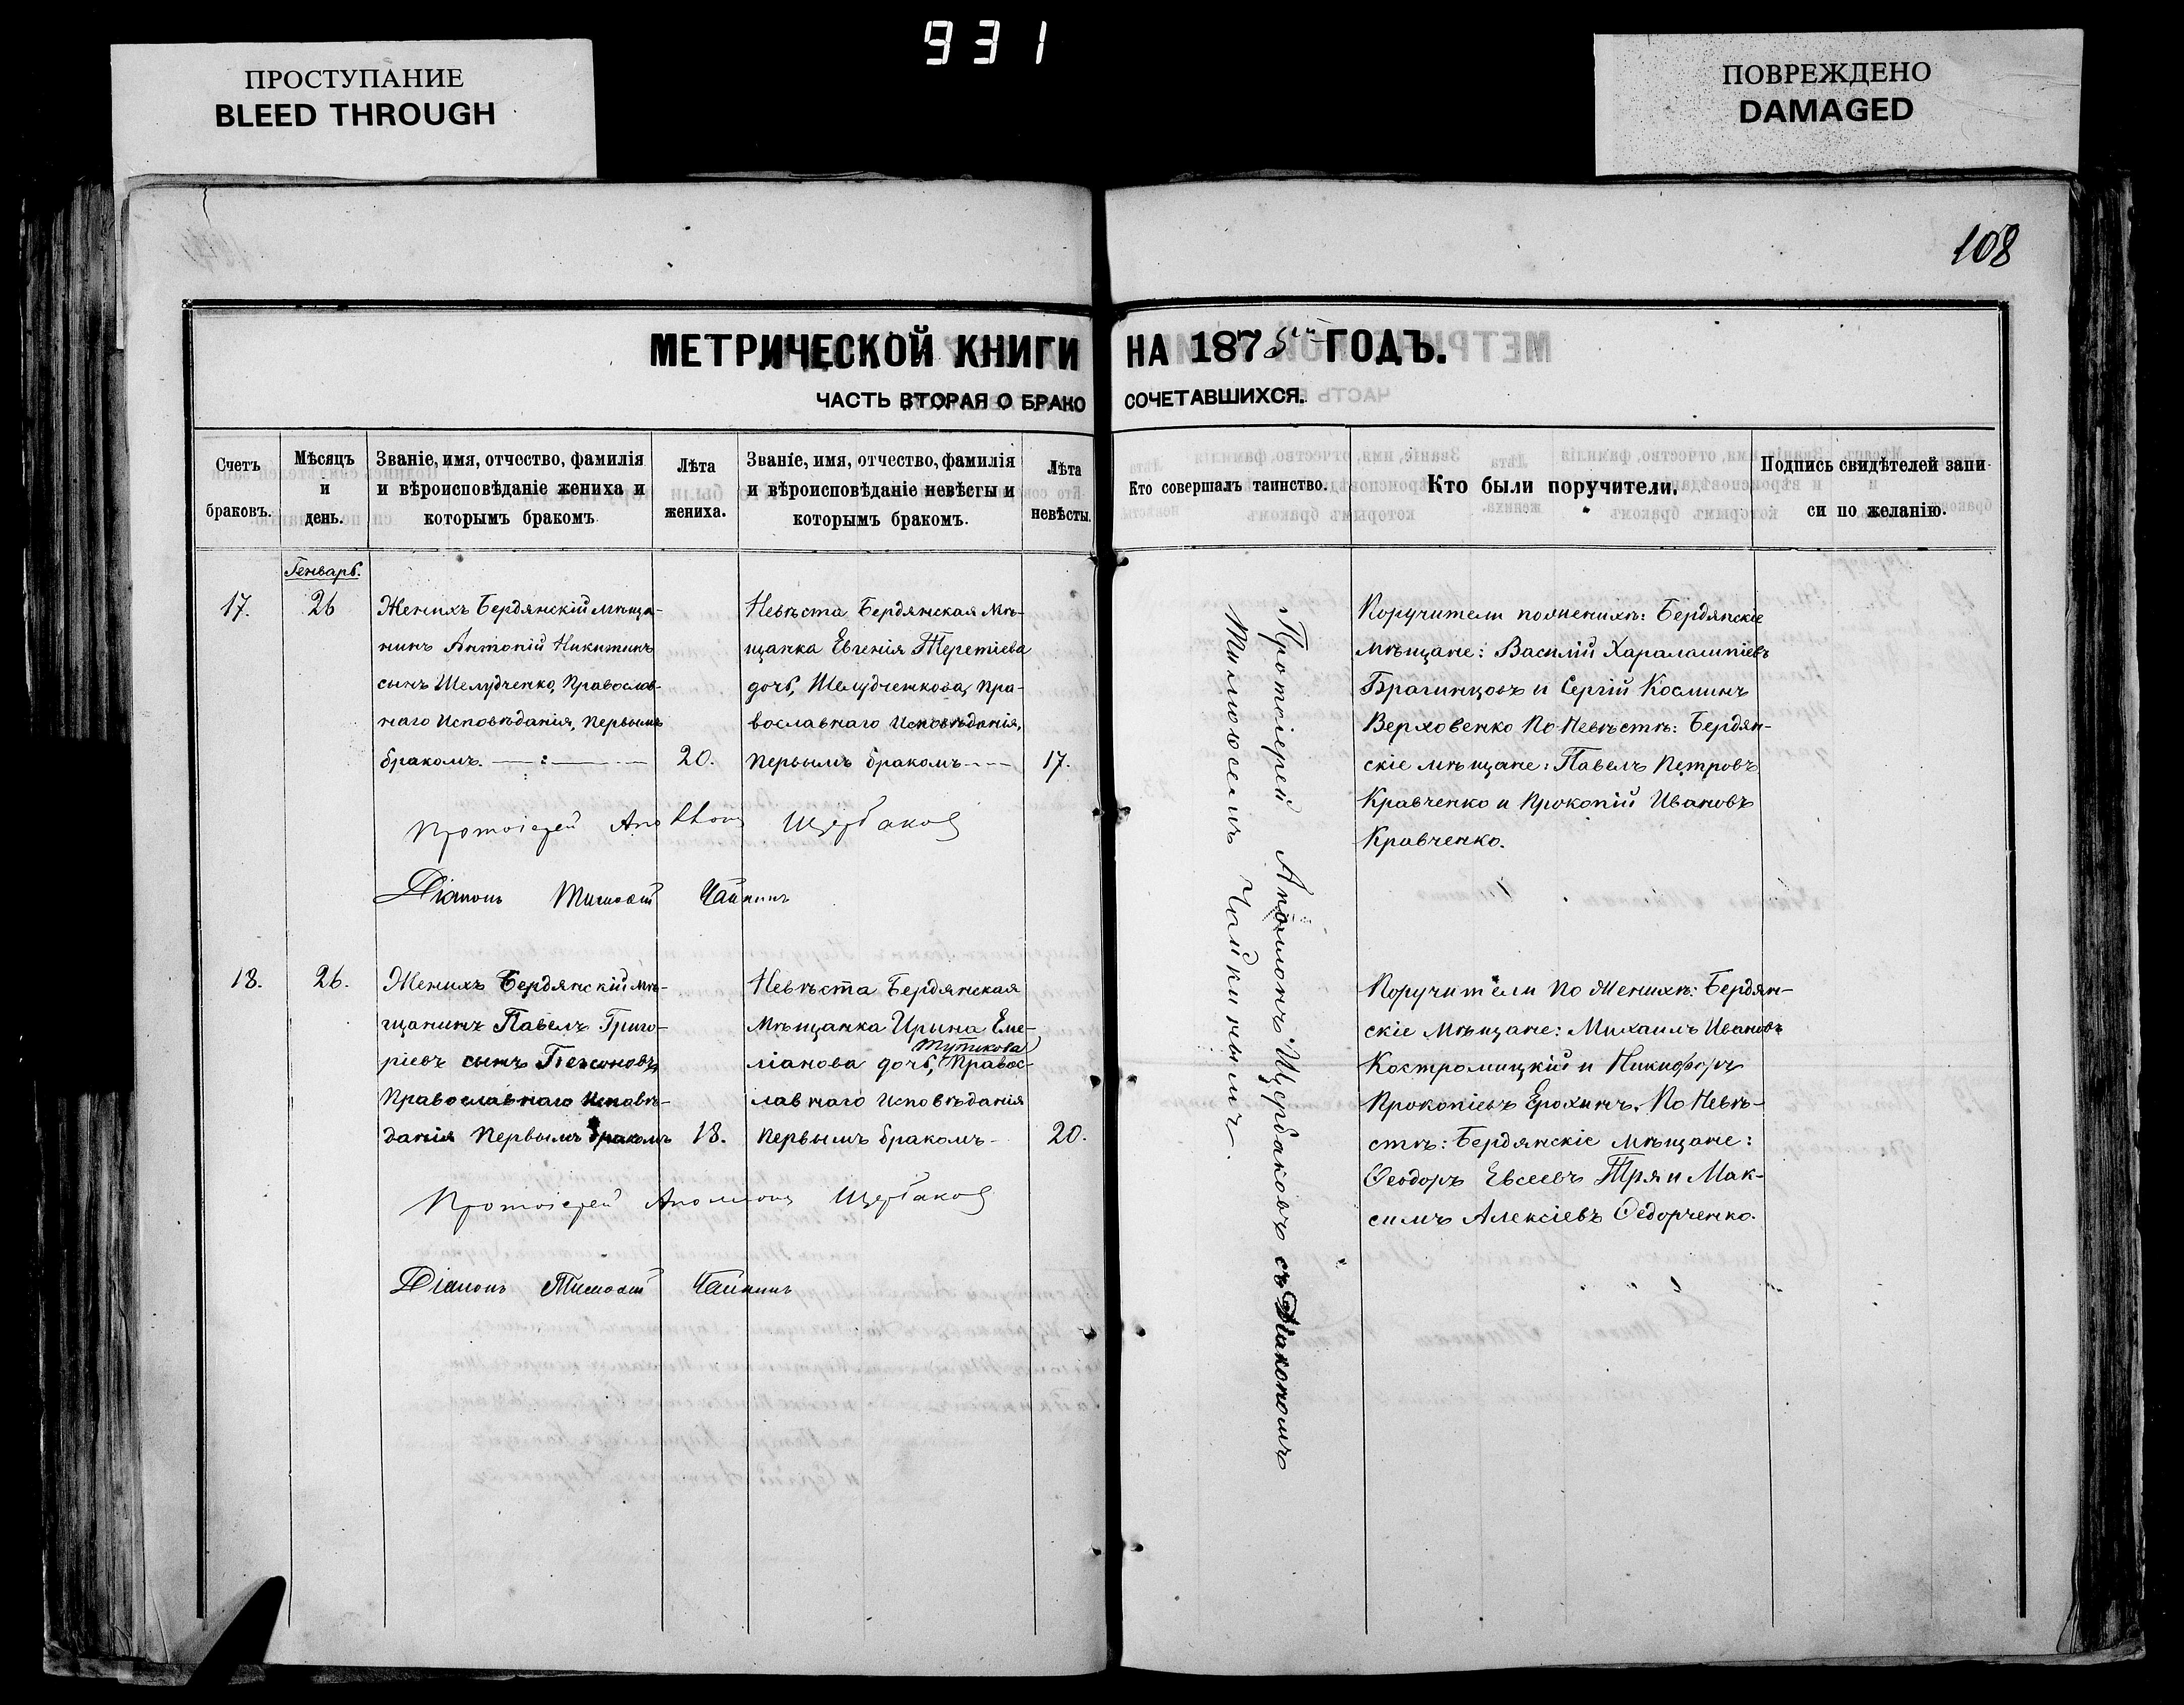 931
ПРОСТУПАНИЕ
BLEED THROUGH
ПОВРЕЖДЕНО
DAMAGED
108
МЕТРИЧЕСКОЙ КНИГИ НА 1875 ГОДЪ.
ЧАСТЬ ВТОРАЯ О БРАКОСОЧЕТАВШИХСЯ.
Счетъ
браковъ.
Мѣсяцъ
и
день.
Званіе, имя, отчество, фамилія
и вѣроисповѣданіе жениха и
которымъ бракомъ
Лѣта
жениха.
Званіе, имя, отчество, фамилія
и вѣроисповѣданіе невѣсты и
которымъ бракомъ.
Лѣта
невѣсты.
Кто совершалъ таинство.
Кто были поручители.
Подпись свидѣтелей запи
си по желанію.
Генварь.
17.
26
Женихъ Бердянскій мѣща-
нинъ Антоній Никитинъ
сынъ Шелудченко, Православ-
наго Исповѣданія, Первымъ
бракомъ.
20.
Невѣста Бердянская Мѣ-
щанка Евгенія Терентіева
дочь, Шелудченкова, Пра-
вославнаго Исповѣданія,
Первымъ бракомъ
17.
Протоіерей Аполлонъ Щербаковъ съ Діакономъ
Тимофеемъ Чайкинымъ.
Поручители по женихѣ: Бердянскіе
мѣщане: Василій Харалампіевъ
Брагинцовъ и Сергій Косминъ
Верховенко По Невѣстѣ: Бердян-
скіе мѣщане: Павелъ Петровъ
Кравченко и Прокопій Ивановъ
Кравченко.
Протоіерей Аполлонъ Щербаковъ
Діаконъ Тимофей Чайкинъ
18.
26.
Женихъ Бердянскій мѣ-
щанинъ Павелъ Григо-
ріевъ сынъ
Православнаго Исповѣ-
данія Первымъ бракомъ
18.
Невѣста Бердянская
Мѣщанка Ирина Еме-
Тутикова
ліанова дочь, Правос-
лавнаго Исповѣданія
Первымъ бракомъ-
20.
Поручители По Женихѣ: Бердян-
скіе Мѣщане: Михаилъ Ивановъ
Костромицкій и Никифоръ
Прокопіевъ Ерохинъ. По Невѣ-
стѣ: Бердянскіе мѣщане:
Ѳеодоръ Евсеевъ Тря и Мак-
симъ Алексіевъ Ѳедорченко.
Протоіерей Аполлонъ Щербаковъ
Діаконъ Тимофей Чайкинъ